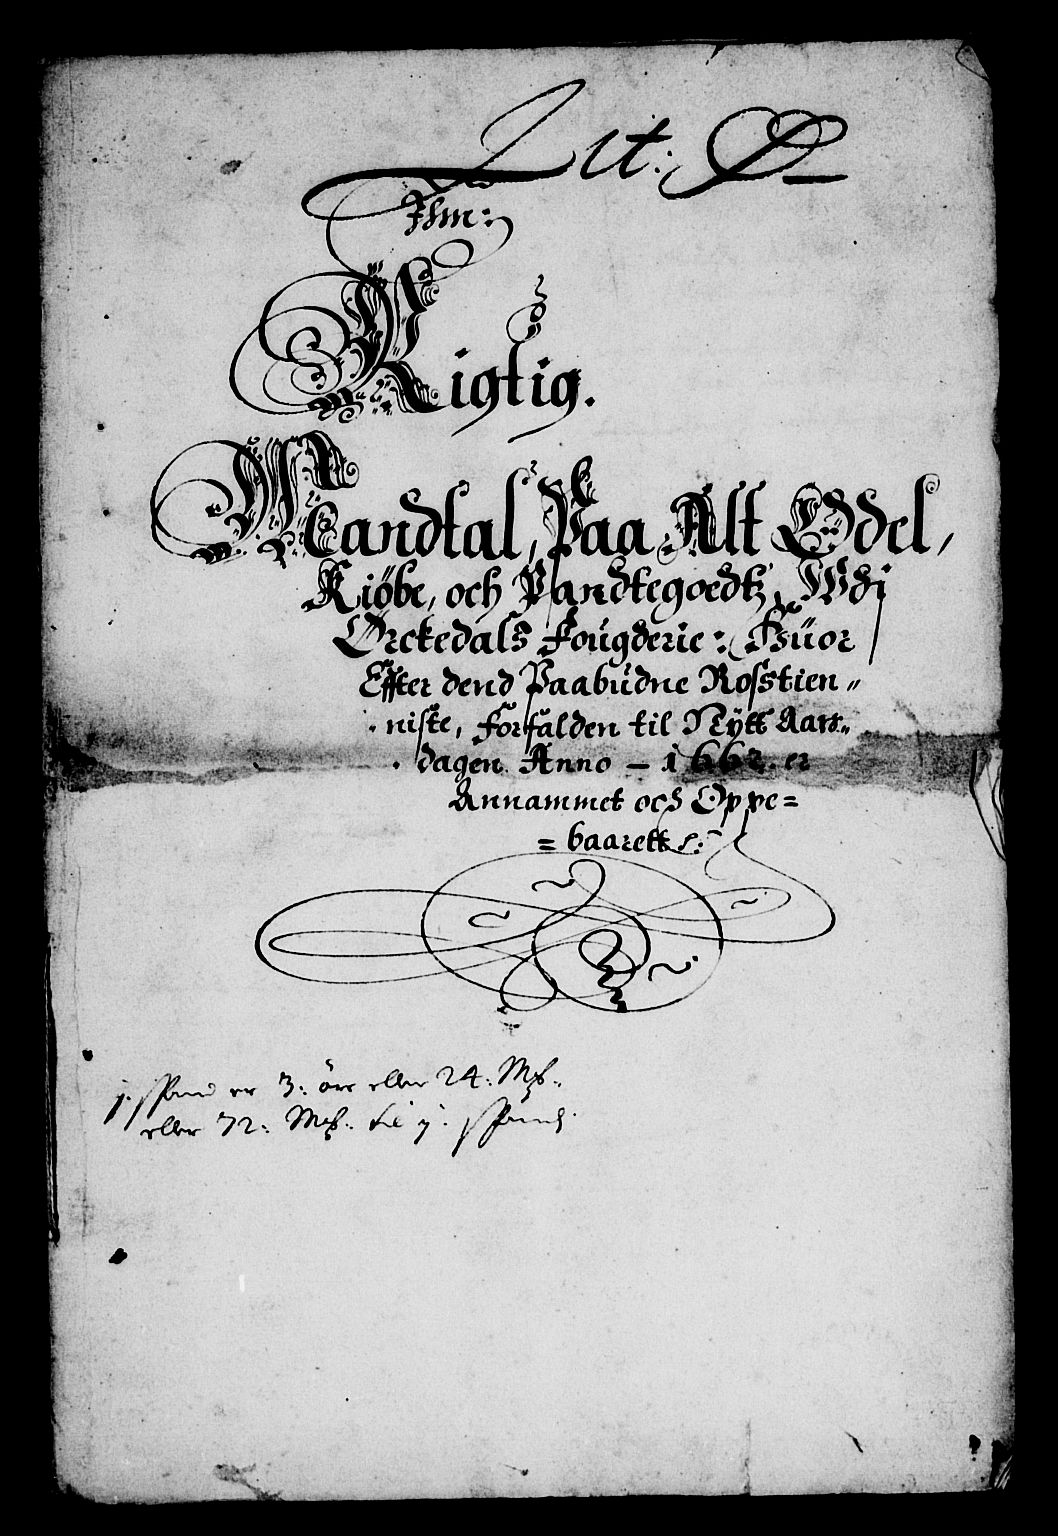 Lit: D
Ihm:
Rigtig.
Mandtal, Paa Alt Odel,
Kiöbe, och Pandtegoedtz, Wdi
Ørckedals Fougderie: Huor
Effter dend Paabudne Rosstien„
niste, forfalden til Nytt Aars„
dagen Anno – 1662. er
Annammet och Oppe=
=baarett
j. spand er 3: öre eller 24: Mk.
eller 72: Mk. til j. spand.